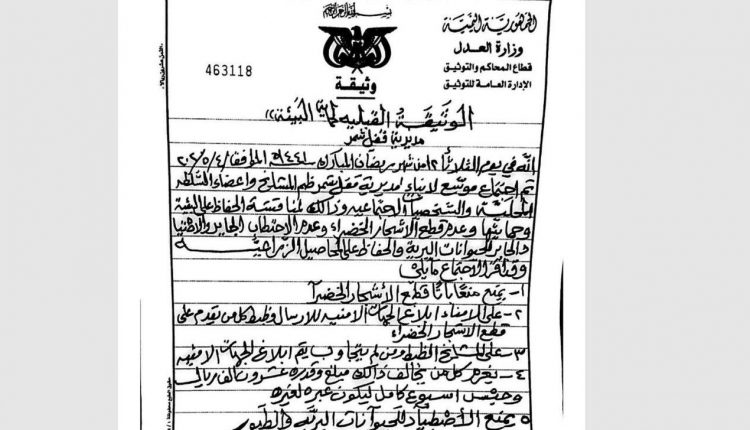 بسم الله الرحمن الرحيم
الجمهورية اليمنية
وزارة العدل
قطاع المحاكم والتوثيق
الإدارة العامة للتوثيق
463118
وثيقة
الوثيقة القبلية لحماية البيئة»
مديرية قفل شمر
انه في يوم الثلاثاء من شهر رمضان المبارك ١٤٤١هـ الموافق ٢٠٢٠/٥/٤
تم اجتماع موسع لابناء مديرية قفل شمر ظم المشايخ واعضاء السلطه
المحلية والشخصيات الاجتماعيه وذالك لمناقشة الحفاظ على البيئة
وحمايتها وعدم قطع الاشجار الخضراء وعدم الاحتطاب الجاير والاصطياد
الجاير للحيوانات البرية والحفاظ على المحاصيل الزراعية
وقد اقر الاجتماع مايلي
١- يمنع منعاً باتاً قطع الأشجار الخضرآ
٢- على الامناء ابلاغ الجهات الامنيه للارسال وظبط كل من يقدم على
قطع الاشجار الخضراء
٣- على المشايخ الظبط ومن لم يتجاوب يتم ابلاغ الجهات الامنيه
٤- يغرم كل من يخالف ذالك مبلغ وقدره عشرون الف ريال
وحبس اسبوع كامل ليكون عبره لغيره
٥ يمنع الأصطياد للحيوانات البريه والطيور